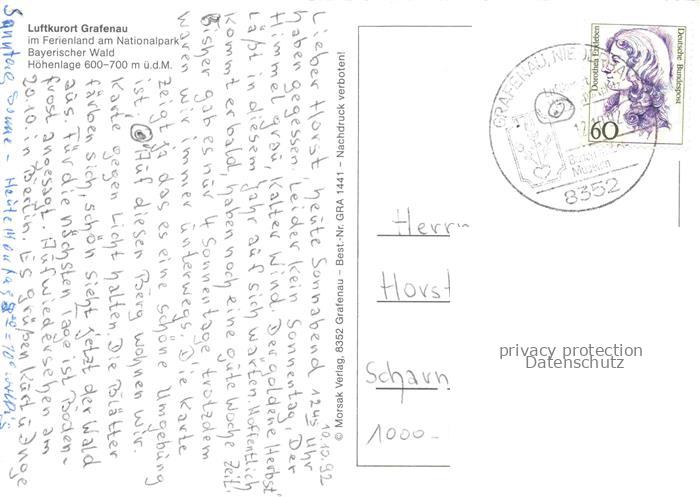 Luftkurort Grafenau
im Ferienland am Nationalpark
Bayerischer Wald
Höhenlage 600–700 m ü.d.M.
10.10.92
Lieber Horst, heute Sonnabend 12⁴⁵ Uhr
haben gegessen. Leider kein Sonnentag, Der
Himmel grau, kalter Wind. Der goldene Herbst
läßt in diesem Jahr auf sich warten. Hoffentlich
kommt er bald, haben noch eine gute Woche Zeit.
Bisher gab es nur 4 Sonnentage, trotzdem
waren wir immer unterwegs. Die Karte
zeigt ja das es eine schöne Umgebung
ist. Auf diesen Berg wohnen wir.
Karte gegen Licht halten. Die Blätter
färben sich, schön sieht jetzt der Wald
aus. Für die nächsten Tage ist Boden-
frost angesagt. Aufwiedersehen am
20.10. in Berlin. Es grüßen Kurt u. Inge
Sonntag Sonne – Heute
© Morsak Verlag, 8352 Grafenau – Best.-Nr. GRA 1441 – Nachdruck verboten!
GRAFENAU, NIEDERBA
8352
Museen
Dorothea Erxleben
Deutsche Bundespost
60
Herrn
Horst
Scharn
1000-
privacy protection
Datenschutz